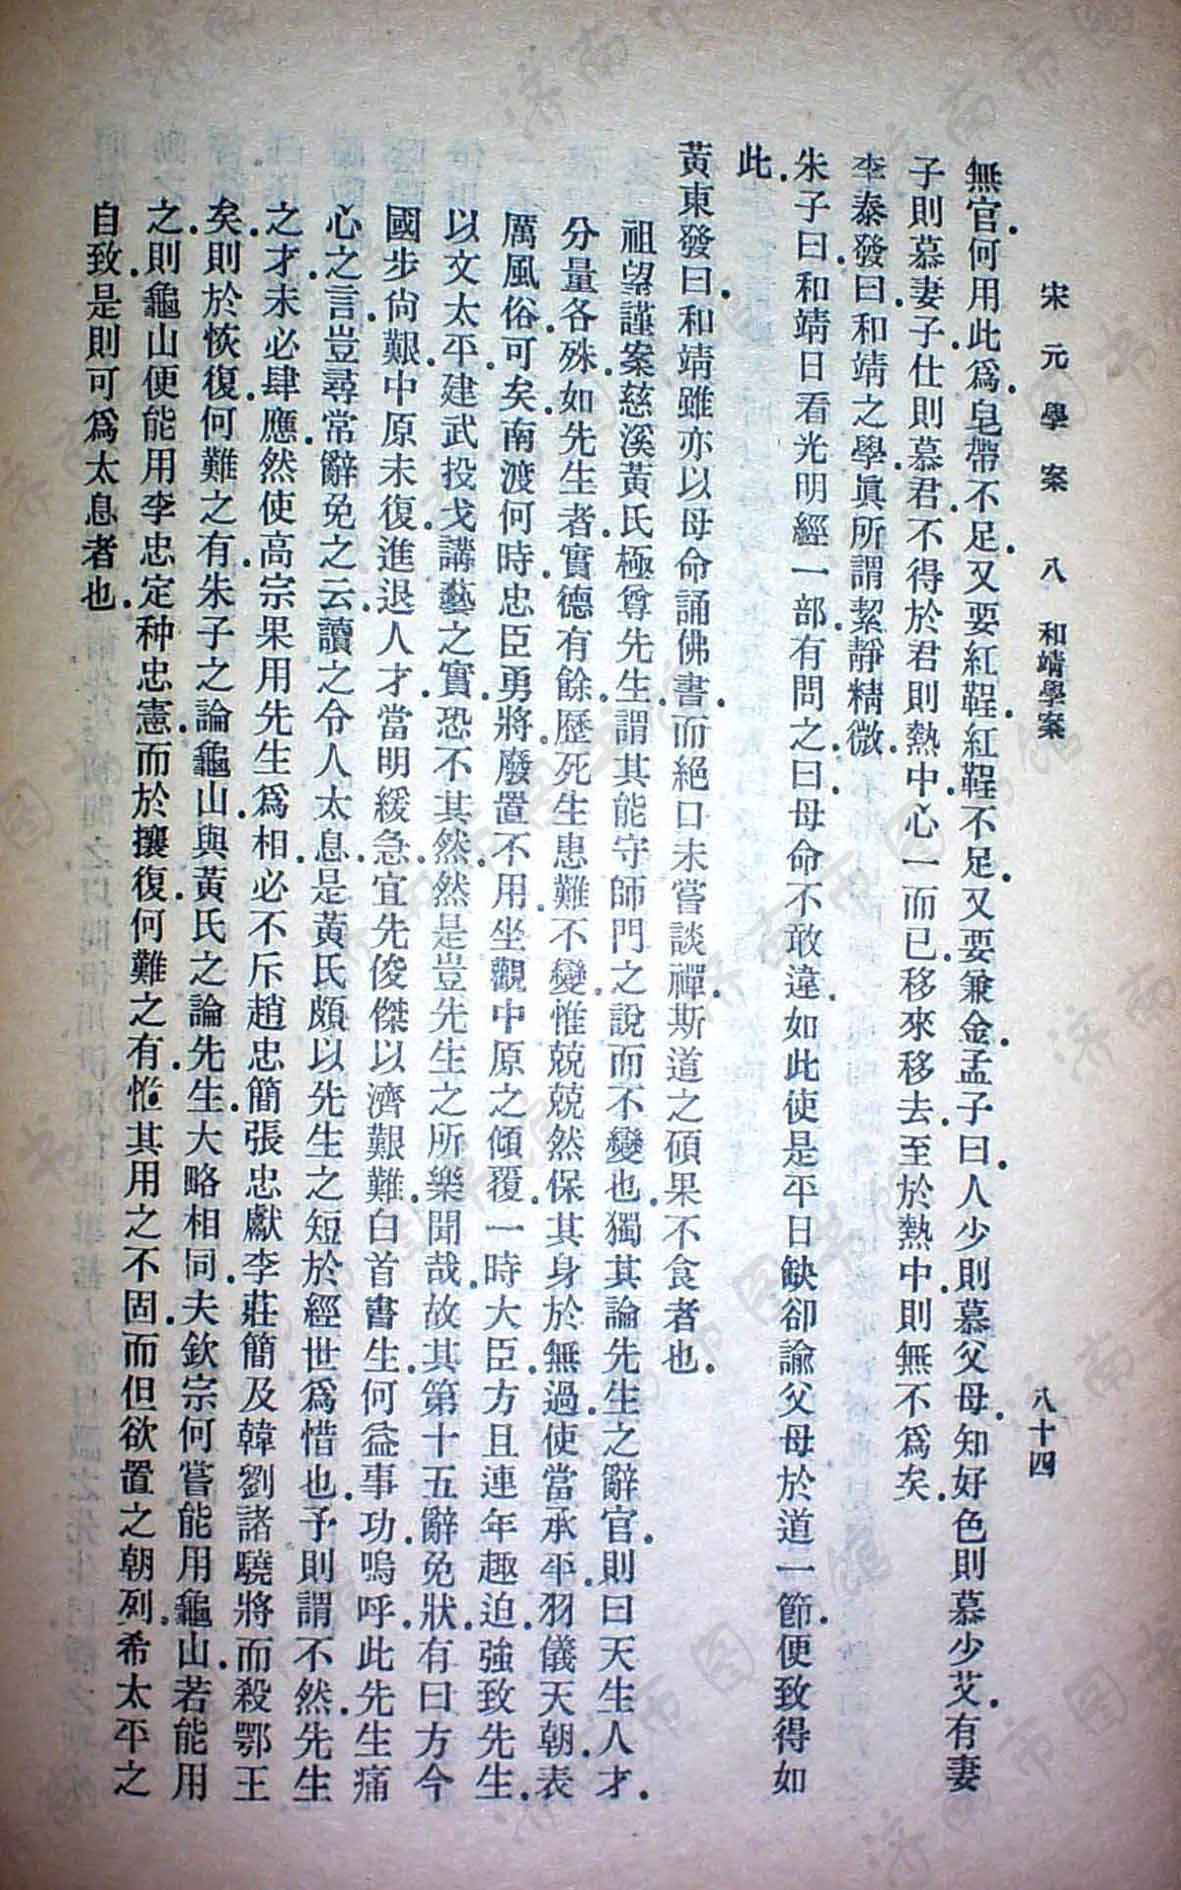 宋元學案　八　和靖學案　八十四
無官何用此爲皂帶不足又要紅鞓紅鞓不足又要兼金孟子曰人少則慕父母知好色則慕少艾有妻
子則慕妻子仕則慕君不得於君則熱中心一而已移來移去至於熱中則無不爲矣
李泰發曰和靖之學眞所謂絜靜精微
朱子曰和靖日看光明經一部有問之曰母命不敢違如此使是平日缺卻諭父母於道一節便致得如
此
黃東發曰和靖雖亦以母命誦佛書而絕口未嘗談禪斯道之碩果不食者也
祖望謹案慈溪黃氏極尊先生謂其能守師門之說而不變也獨其論先生之辭官則曰天生人才
分量各殊如先生者實德有餘歷死生患難不變惟兢兢然保其身於無過使當承平羽儀天朝表
厲風俗可矣南渡何時忠臣勇將廢置不用坐觀中原之傾覆一時大臣方且連年趣迫強致先生
以文太平建武投戈講藝之實恐不其然然是豈先生之所樂聞哉故其第十五辭免狀有曰方今
國步尙艱中原未復進退人才當明緩急宜先俊傑以濟艱難白首書生何益事功嗚呼此先生痛
心之言豈尋常辭免之云讀之令人太息是黃氏頗以先生之短於經世爲惜也予則謂不然先生
之才未必肆應然使高宗果用先生爲相必不斥趙忠簡張忠獻李莊簡及韓劉諸驍將而殺鄂王
矣則於恢復何難之有朱子之論龜山與黃氏之論先生大略相同夫欽宗何嘗能用龜山若能用
之則龜山便能用李忠定种忠憲而於攘復何難之有惟其用之不固而但欲置之朝列希太平之
自致是則可爲太息者也